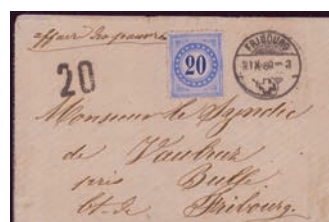 affaire des pauvres
20
20
FRIBOURG
Monsieur le Syndic
de Vaulruz
près Bulle
Ct. de Fribourg.